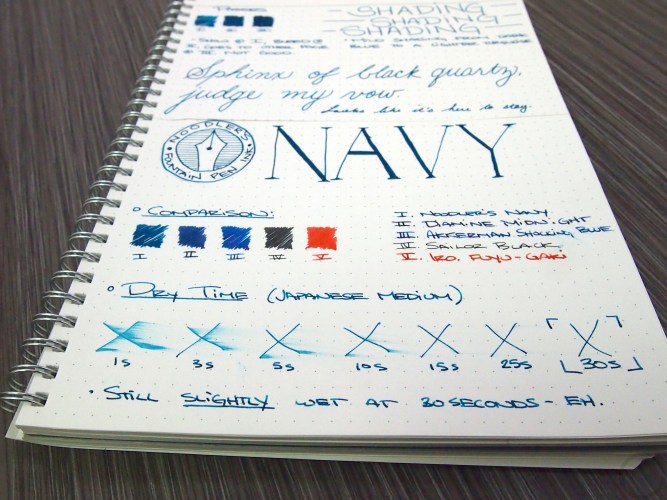 - SHADING -
- SHADING -
SHADING -
I, GOES TO OTHER PAGE
NOT GOOD.
BLUE TO A LIGHTER TURQUOISE
Sphinx of black quartz,
judge my vow.
Looks like it's here to stay.
NOODLER'S
FOUNTAIN PEN INK
NAVY
° COMPARISON:
I II III IV V
I. NOODLER'S NAVY
II. DIAMINE MIDNIGHT
III. AKKERMAN SHOCKING BLUE
IV. SAILOR BLACK
V. IRO. FUYU-GAKI
° DRY TIME (JAPANESE MEDIUM)
1s 3s 5s 10s 15s 25s 30s
• STILL SLIGHTLY WET AT 30 SECONDS - EH.